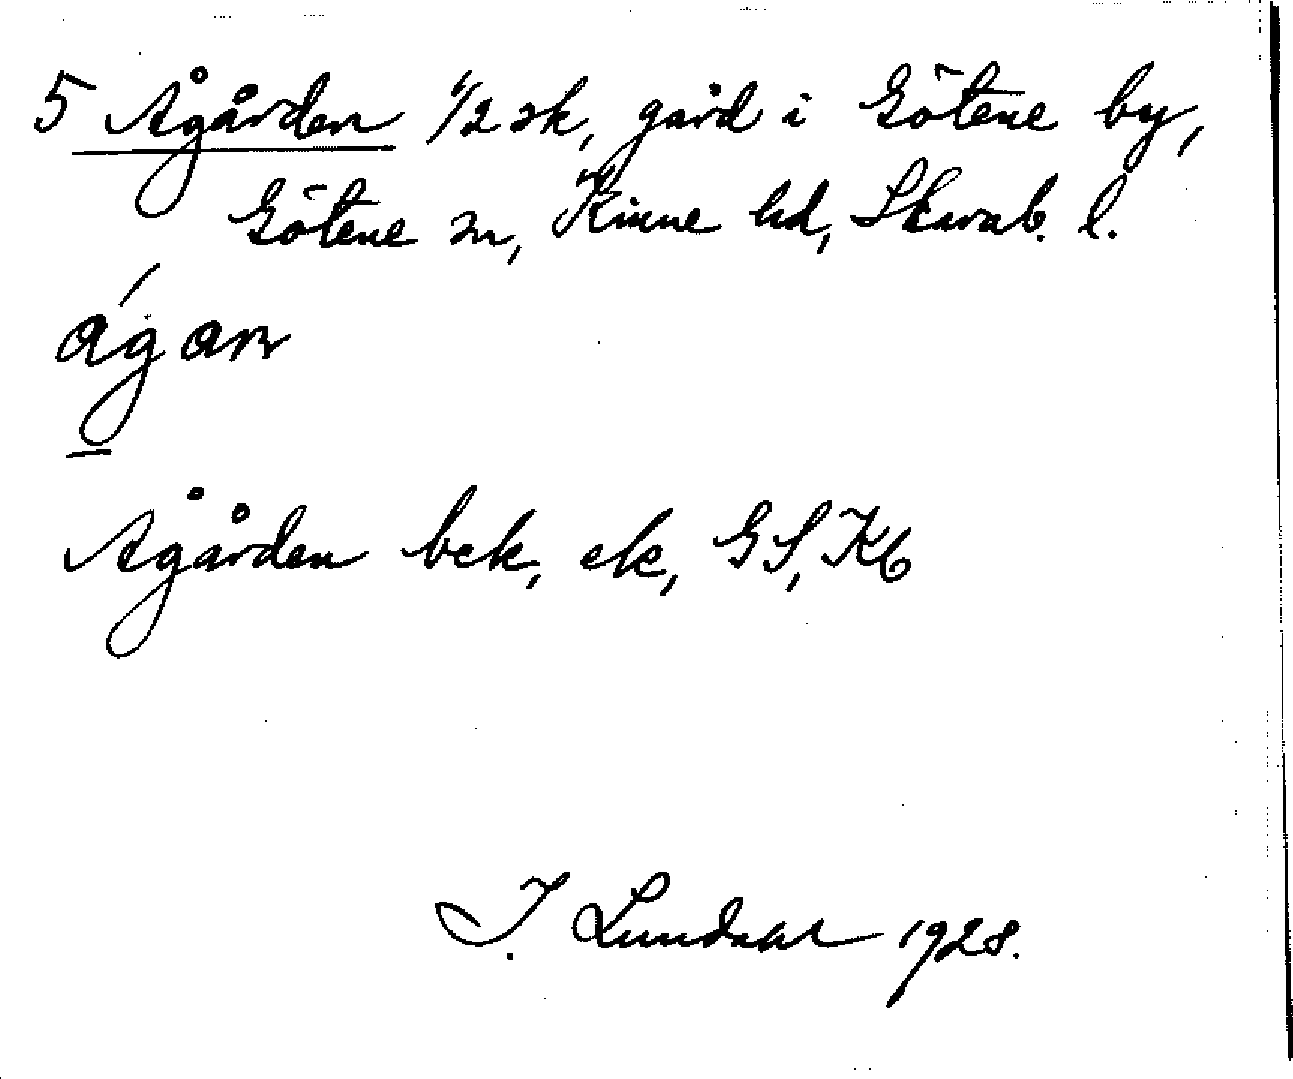 5 Ågården 1/2 sk, gård i Götene by,
Götene sn, Kinne hd, Skarab. l.
ágan
Ågården bek, ek, GS, Kb
I. Lundahl 1928.